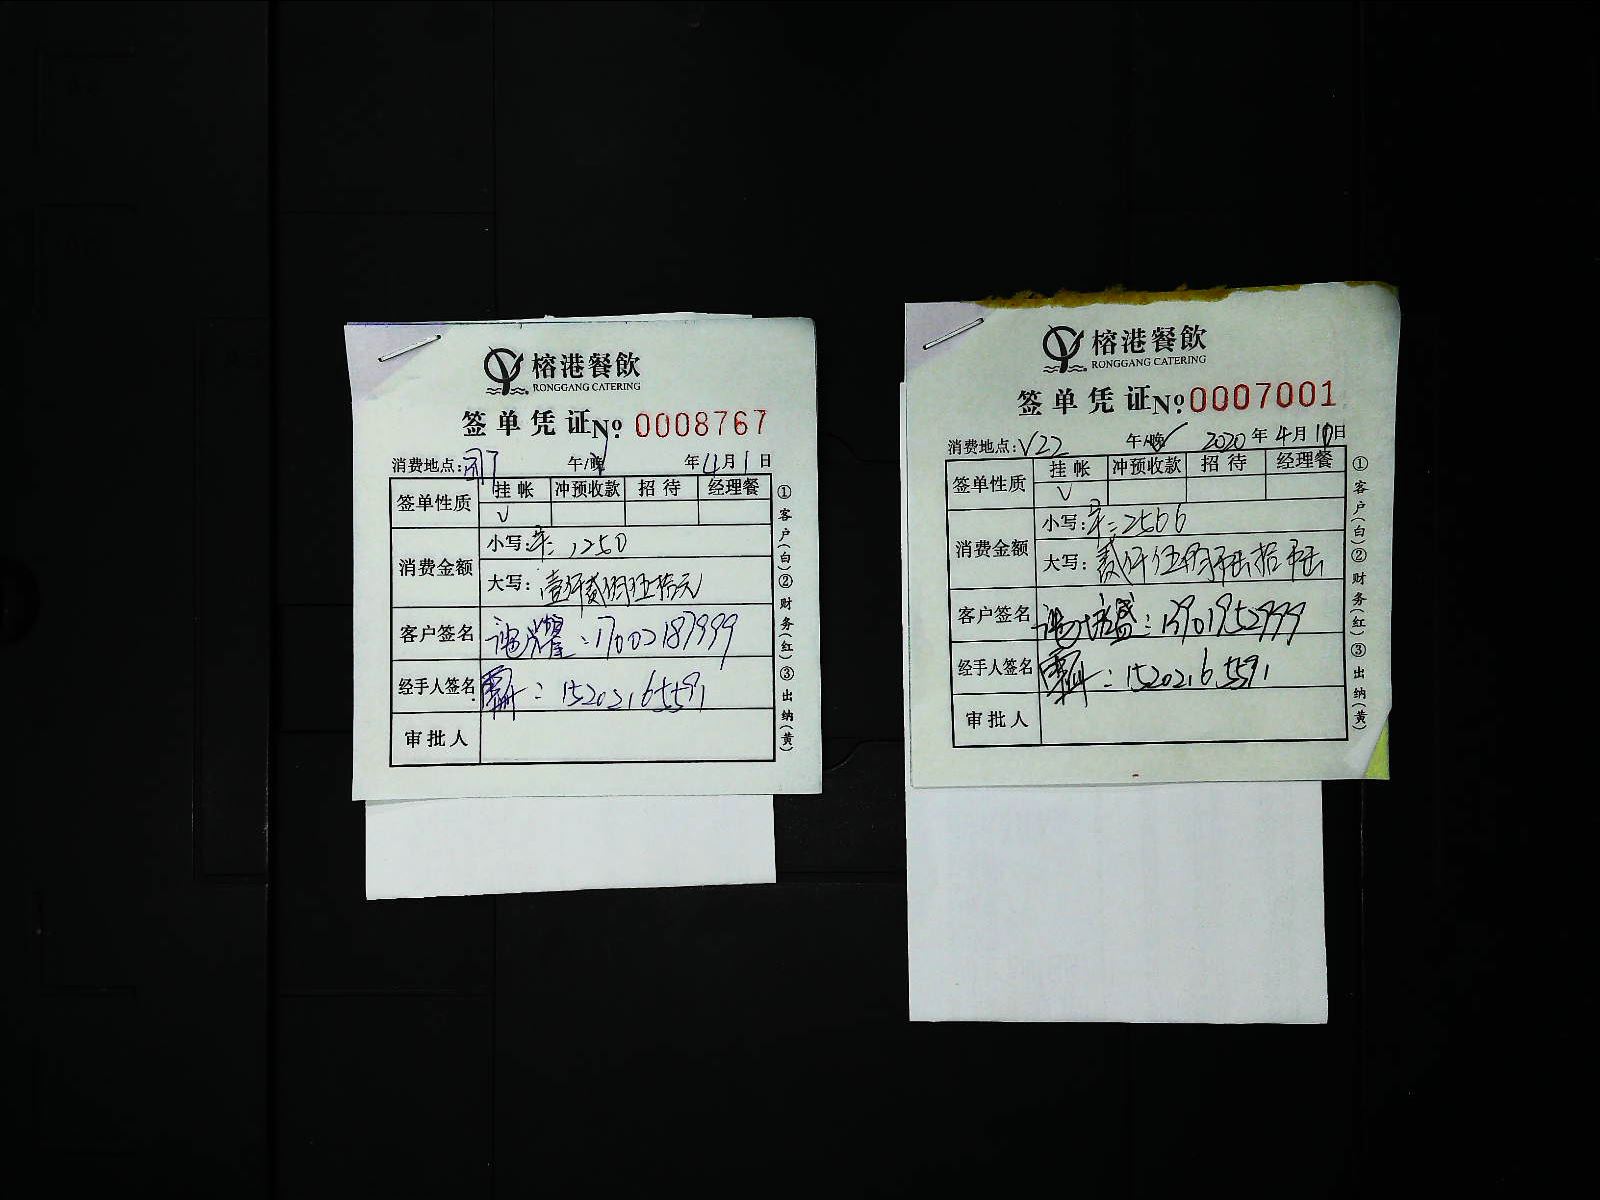 榕港餐飲
RONGGANG CATERING
签单凭证 № 0008767
消费地点: 午/晚 √ 年4月1日
签单性质 挂帐 冲预收款 招待 经理餐
√
消费金额 小写: 1250
大写: 壹仟贰佰伍拾元
客户签名 : 17002187999
经手人签名 : 15202165591
审批人
①客户(白)②财务(红)③出纳(黄)
榕港餐飲
RONGGANG CATERING
签单凭证 №0007001
消费地点: V22 午/晚 √ 2020年4月10日
签单性质 挂帐 冲预收款 招待 经理餐
√
消费金额 小写: 2566
大写: 贰仟伍佰陆拾陆
客户签名 : 13901952999
经手人签名 : 15202165591
审批人
①客户(白)②财务(红)③出纳(黄)